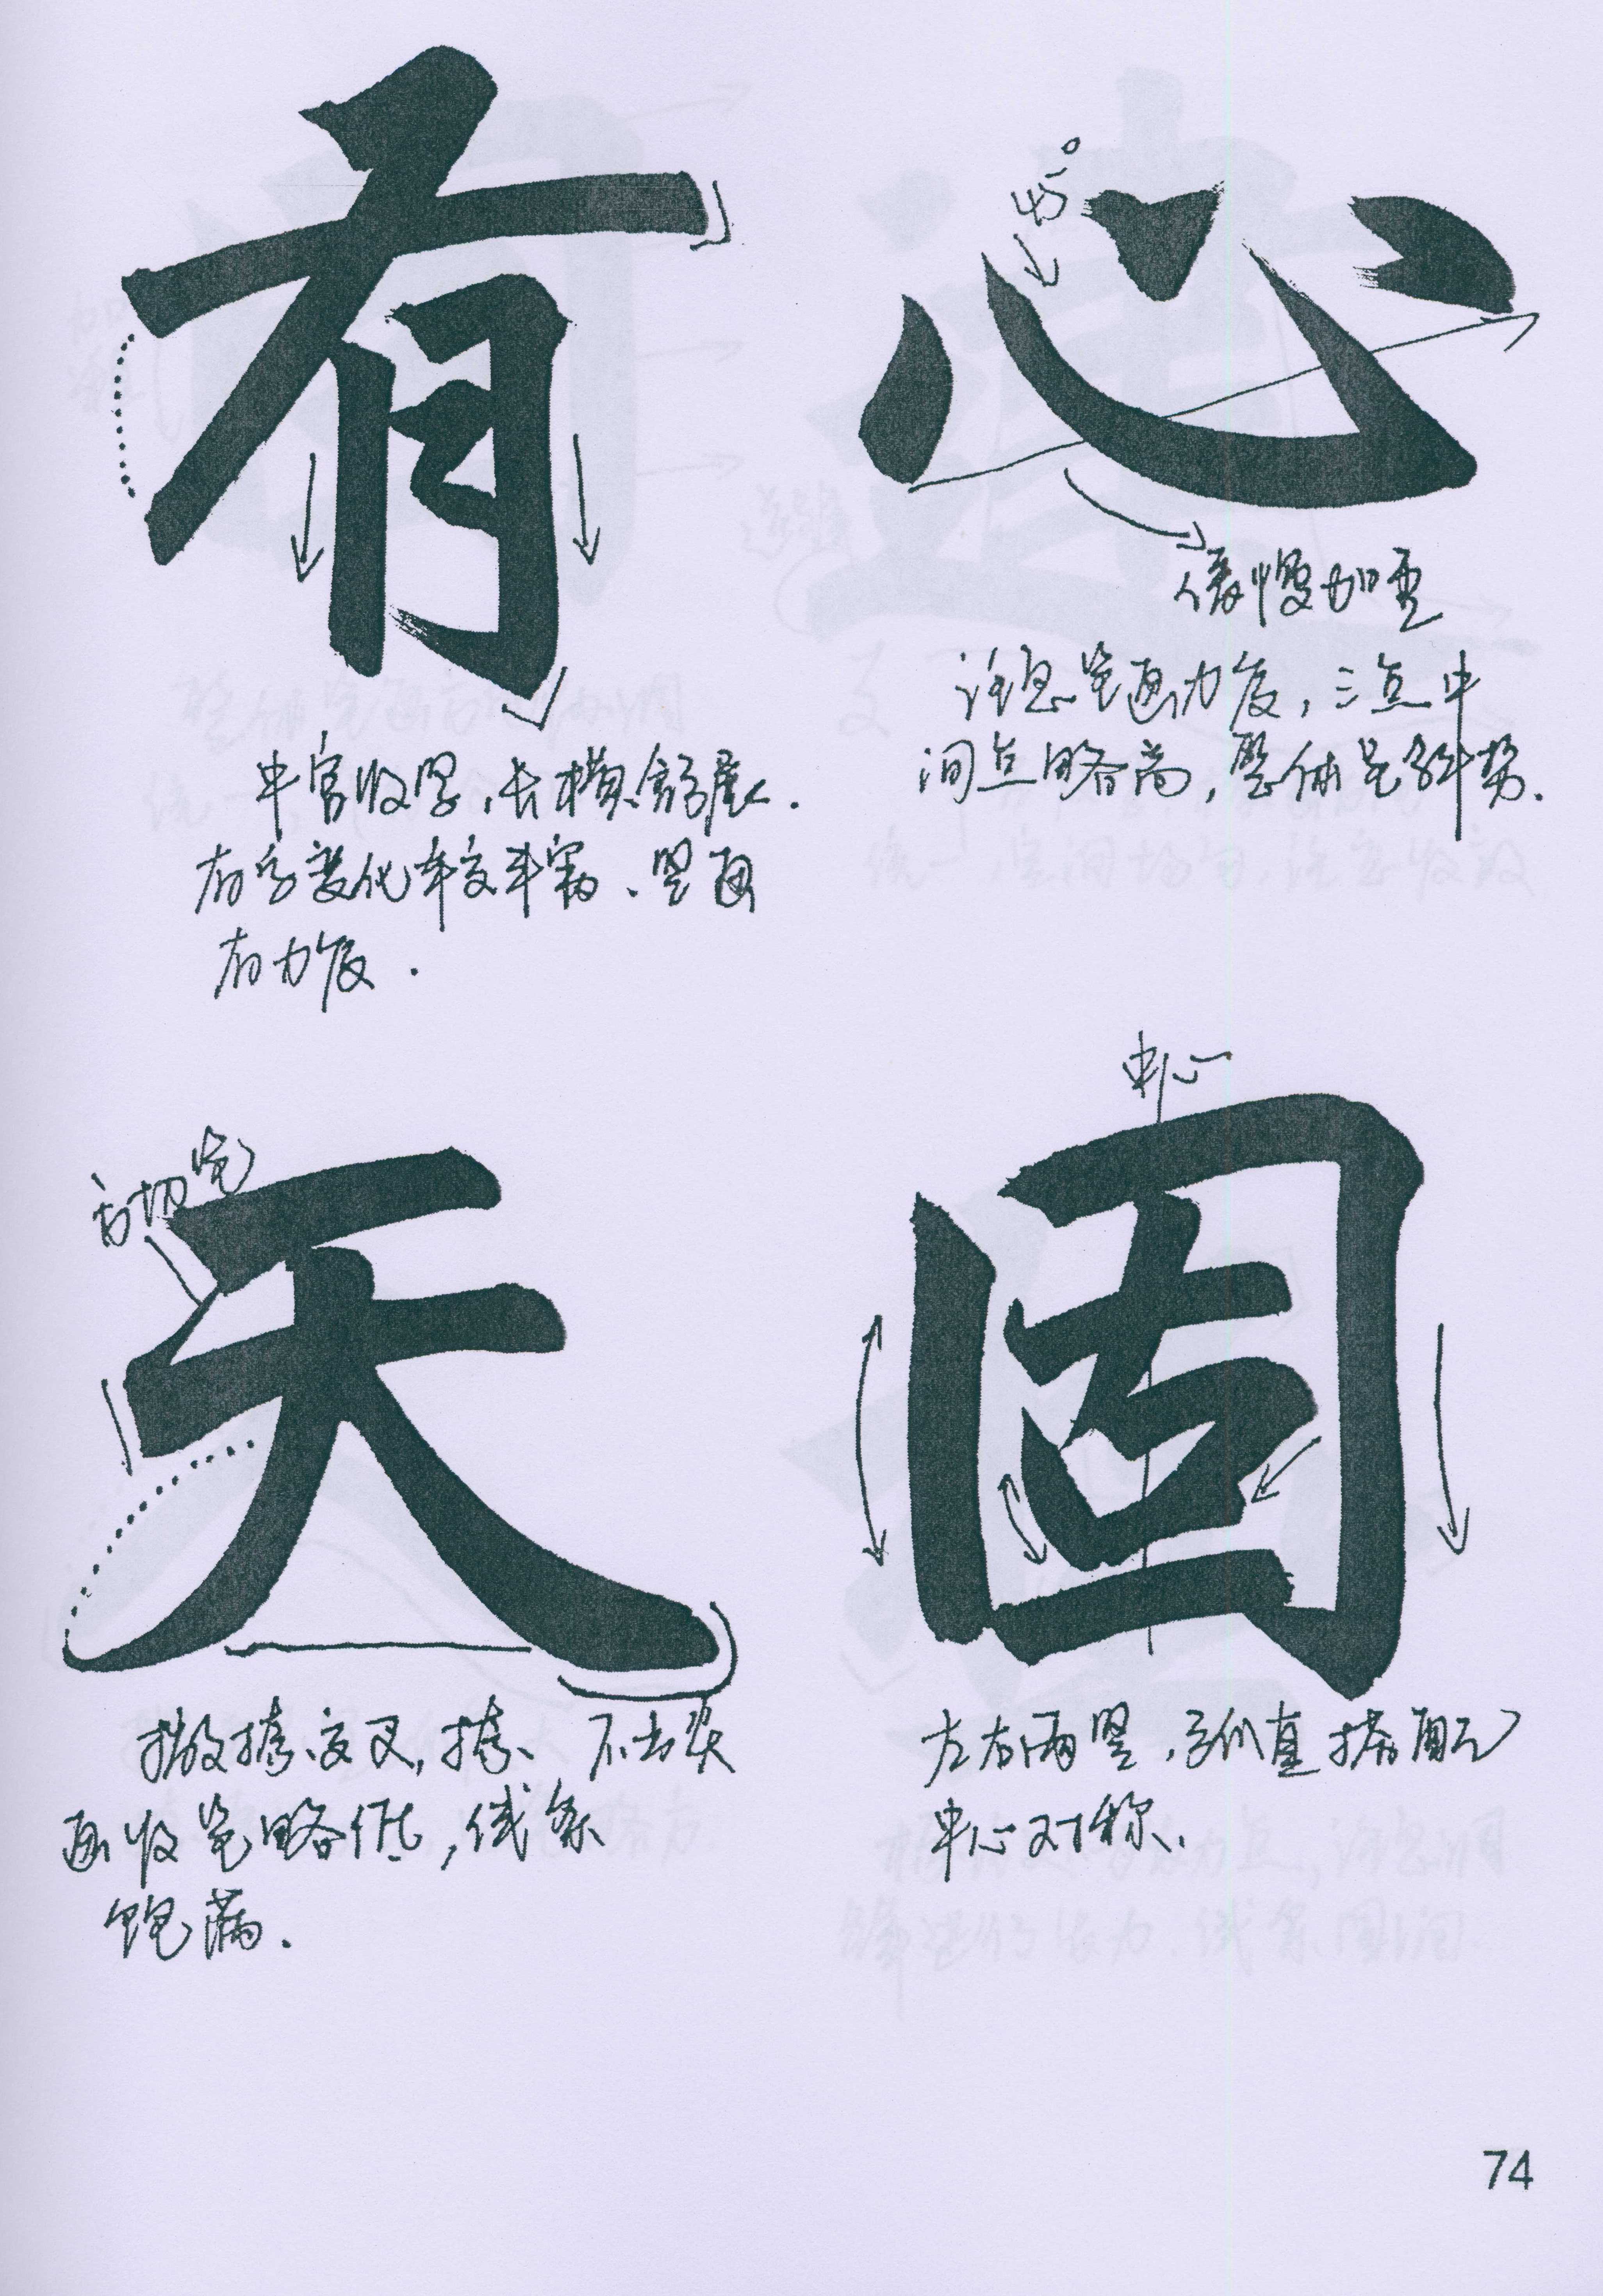 有
中宫收紧，长横舒展.
有字变化较丰富、竖画
有力度.
心
轻。
缓慢加重
注意笔画力度，三点中
间点略高，整体呈斜势.
天
方切笔
撇捺交叉，捺、不出头
画收笔略低，线条
饱满.
固
中心
左右两竖，弧直搭配
中心对称.
74